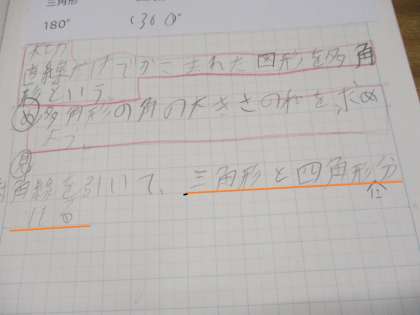 三角形
180° (360°
直線だけでかこまれた図形を多角
形という。
め 多角形の角の大きさの和を求め
よう。
角線を引いて、三角形と四角形分
に
ける